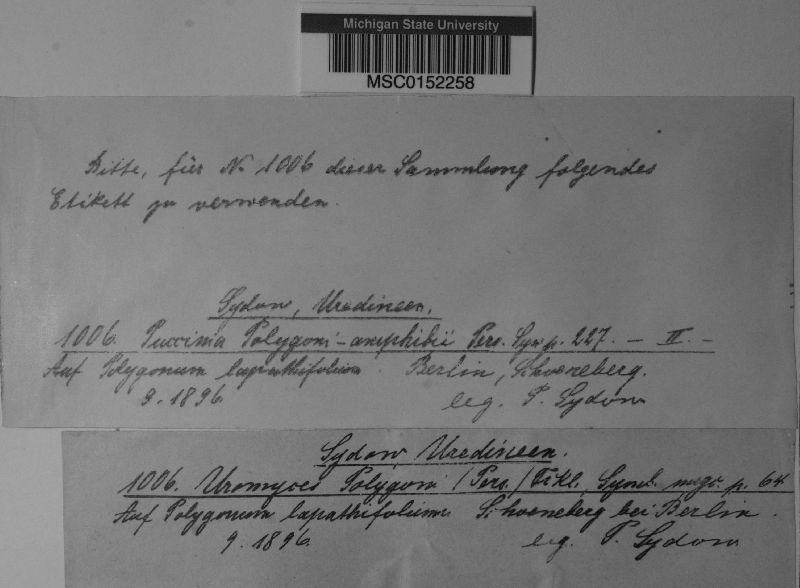 Michigan State University
MSC0152258
Bitte, für No 1006 dieser Sammlung folgendes
Etikett zu verwenden.
Sydow, Uredineen.
1006. Puccinia Polygoni-amphibii Pers. Syn. p. 227. - II. -
Auf Polygonum lapathifolium. Berlin, Schoeneberg.
9. 1896. leg. P. Sydow
Sydow, Uredineen.
1006. Uromyces Polygoni (Pers.) Fckl. Symb. myc. p. 64
Auf Polygonum lapathifolium Schoeneberg bei Berlin.
9. 1896. leg. P. Sydow